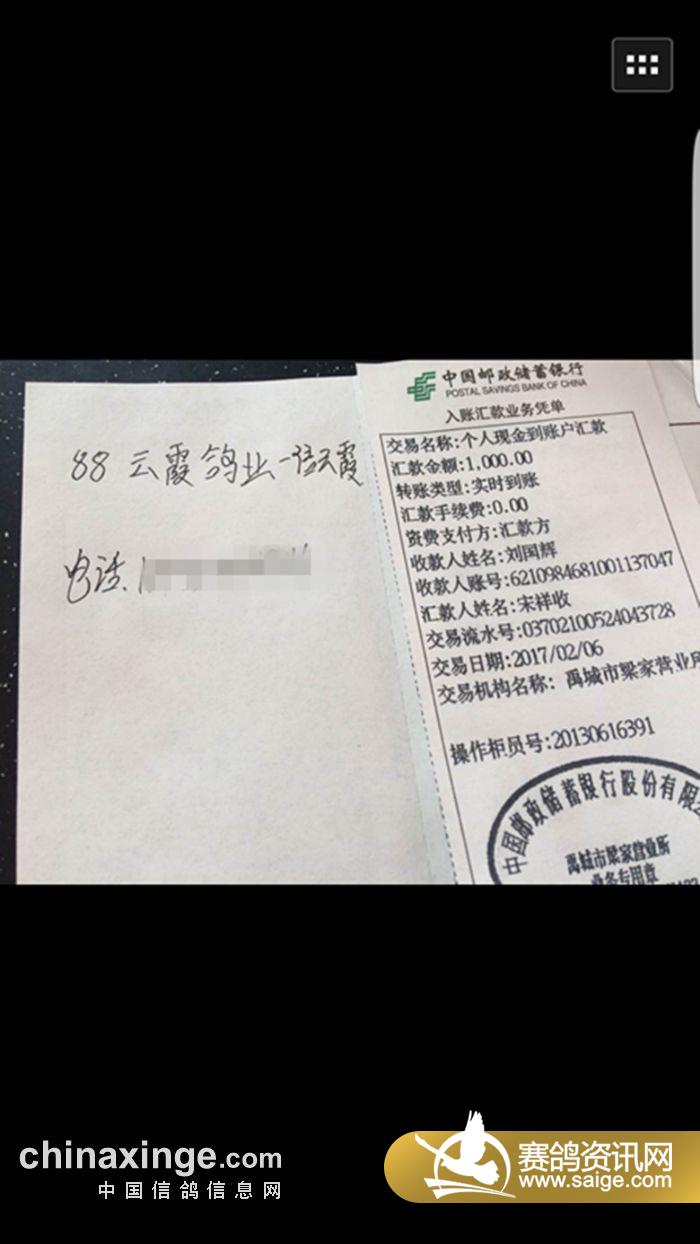 88 云霞鸽业一信云霞
电话:1
中国邮政储蓄银行
POSTAL SAVINGS BANK OF CHINA
入账汇款业务凭单
交易名称:个人现金到账户汇款
汇款金额:1,000.00
转账类型:实时到账
汇款手续费:0.00
资费支付方:汇款方
收款人姓名:刘国辉
收款人账号:6210984681001137047
汇款人姓名:宋祥收
交易流水号:03702100524043728
交易日期:2017/02/06
交易机构名称: 禹城市梁家营业所
操作柜员号:20130616391
中国邮政储蓄银行股份有限
禹城市梁家营业所
业务专用章
chinaxinge.com
中国信鸽信息网
赛鸽资讯网
www.saige.com